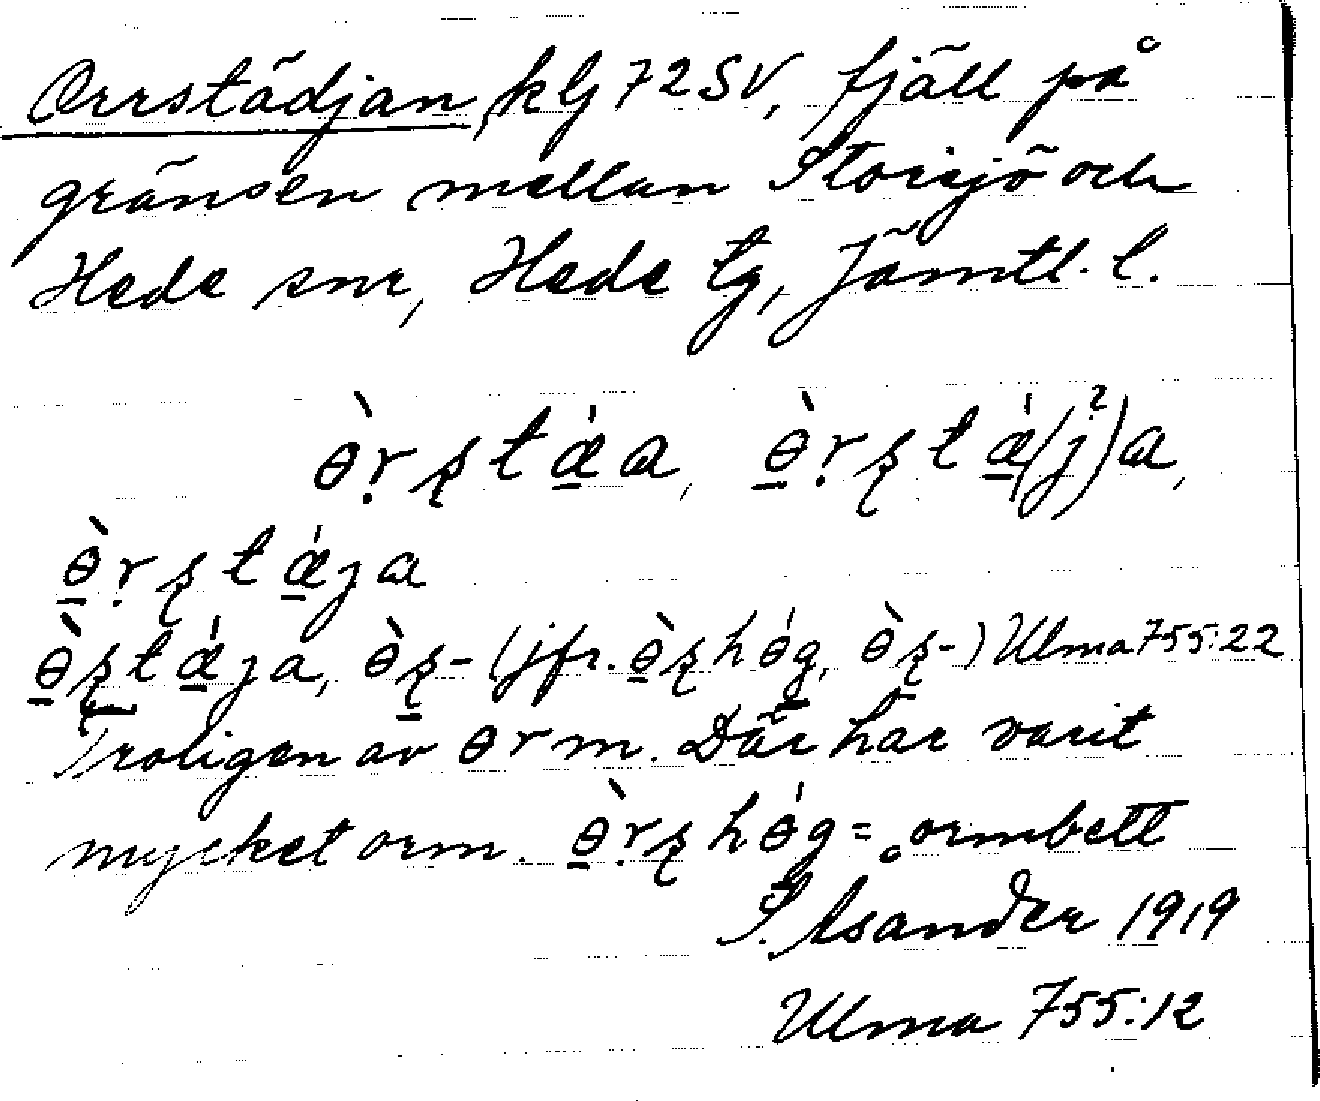 Orrstädjan, kbl 72 SV, fjäll på
gränsen mellan Storsjö och
Hede snr, Hede tg, Jämtl. l.
ɵ̀ṛʂtǽ̲a, ɵ̲̀ṛʂtǽ̲(j?)a,
ɵ̲̀ṛʂtǽ̲ja
ɵ̲̀ʂtǽ̲ja, ɵ̀ʂ- (jfr. ɵ̲̀ʂhɵ́g, ɵ̀ʂ-) Ulma 755:22
Troligen av ɵrm. Där har varit
mycket orm. ɵ̲̀ṛʂhɵ́g = ormbett
Åsander 1919
Ulma 755:12